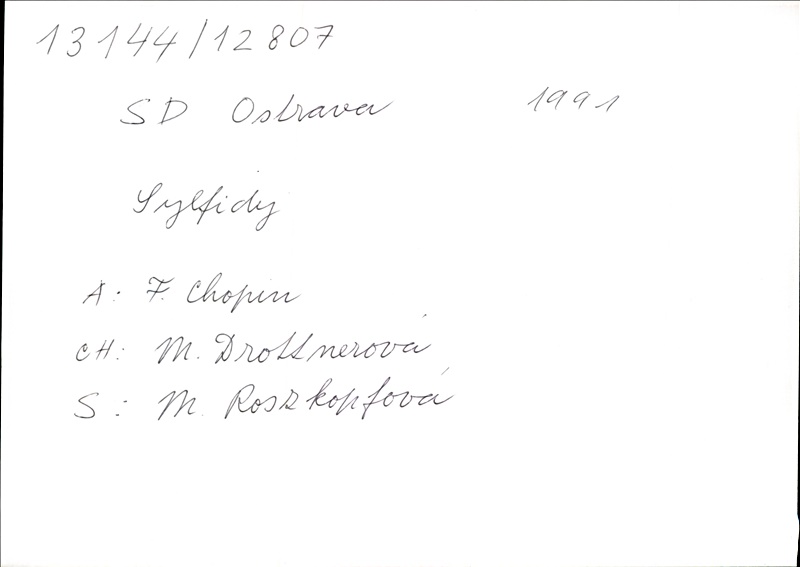 13144/12807
SD Ostrava 1991
Sylfidy
A: F. Chopin
CH: M. Drottnerová
S: M. Roszkopfová